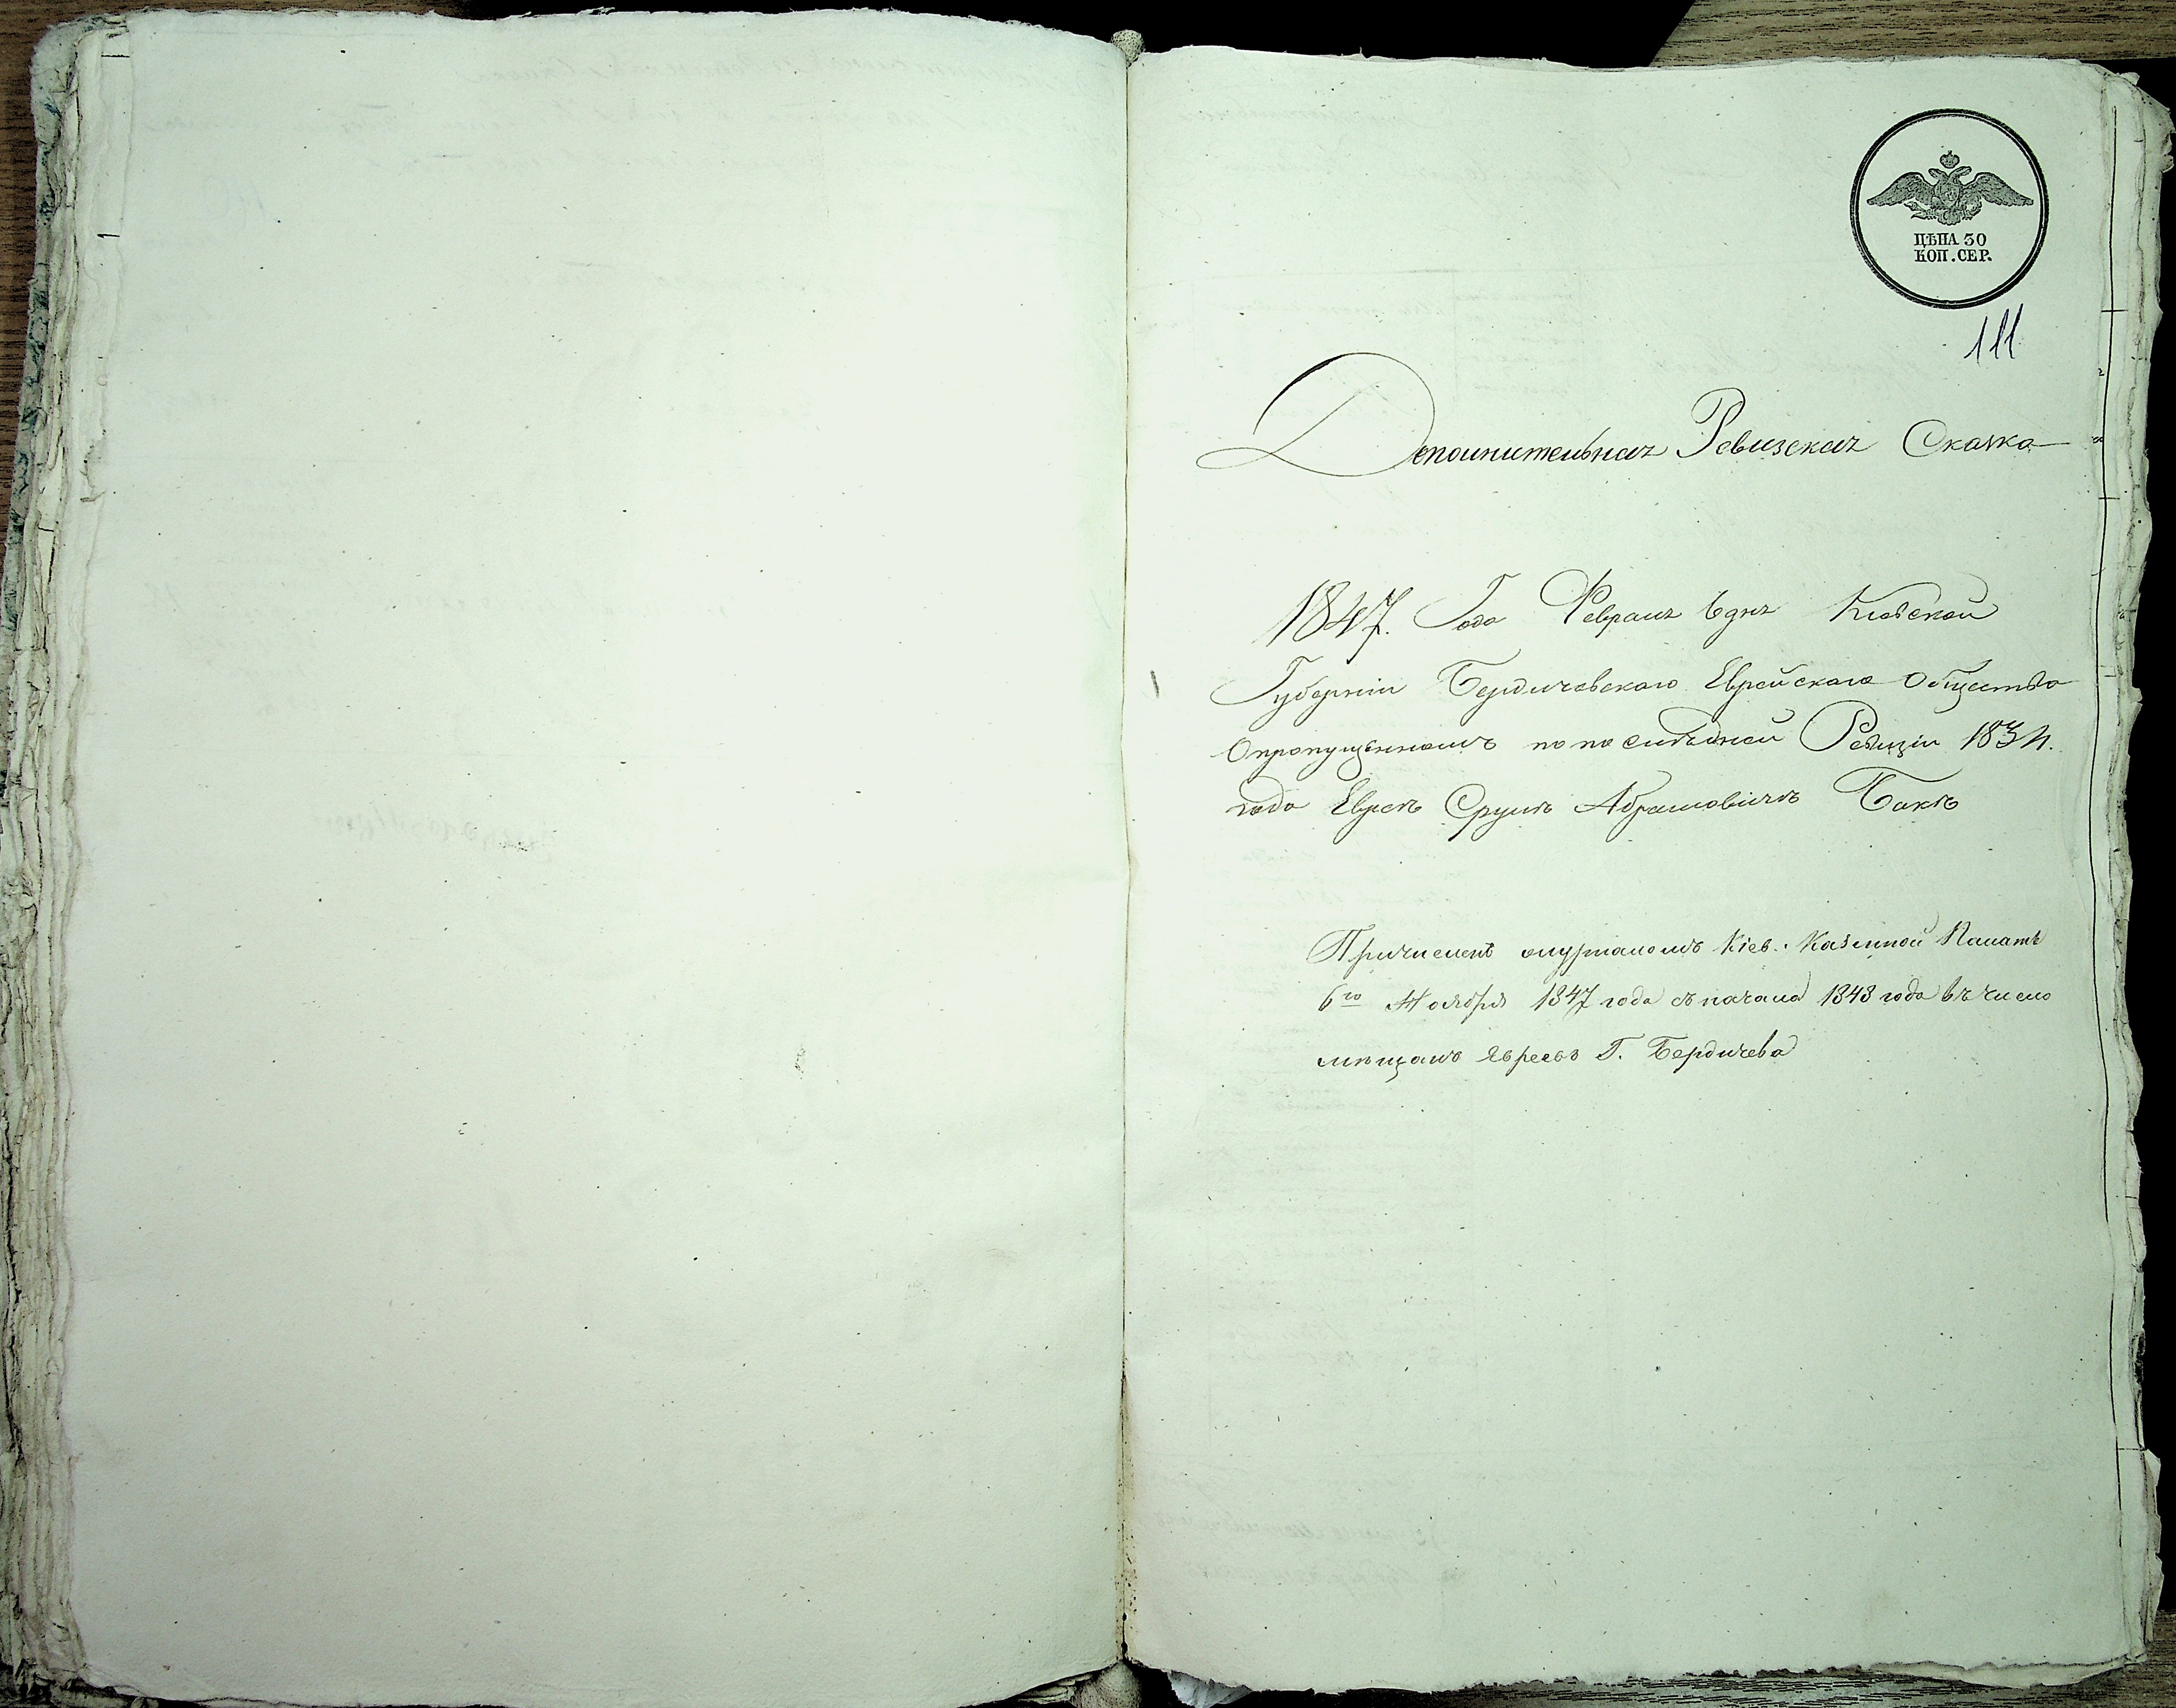 ЦѢНА 30
КОП. СЕР.
111
Дополнительная Ревизская Сказка
1847. Года Февраля 6 дня Кіевской
Губерніи Бердичевскаго Еврейскаго Общества
О пропущенномъ по последней Ревизіи 1834.
года Евреѣ Сруль Абрамовичъ Бакъ
Причисленъ журналомъ Кіев. Казенной Палаты
6го Ноября 1847 года съ начала 1848 года въ число
мѣщанъ Евреевъ Г. Бердичева